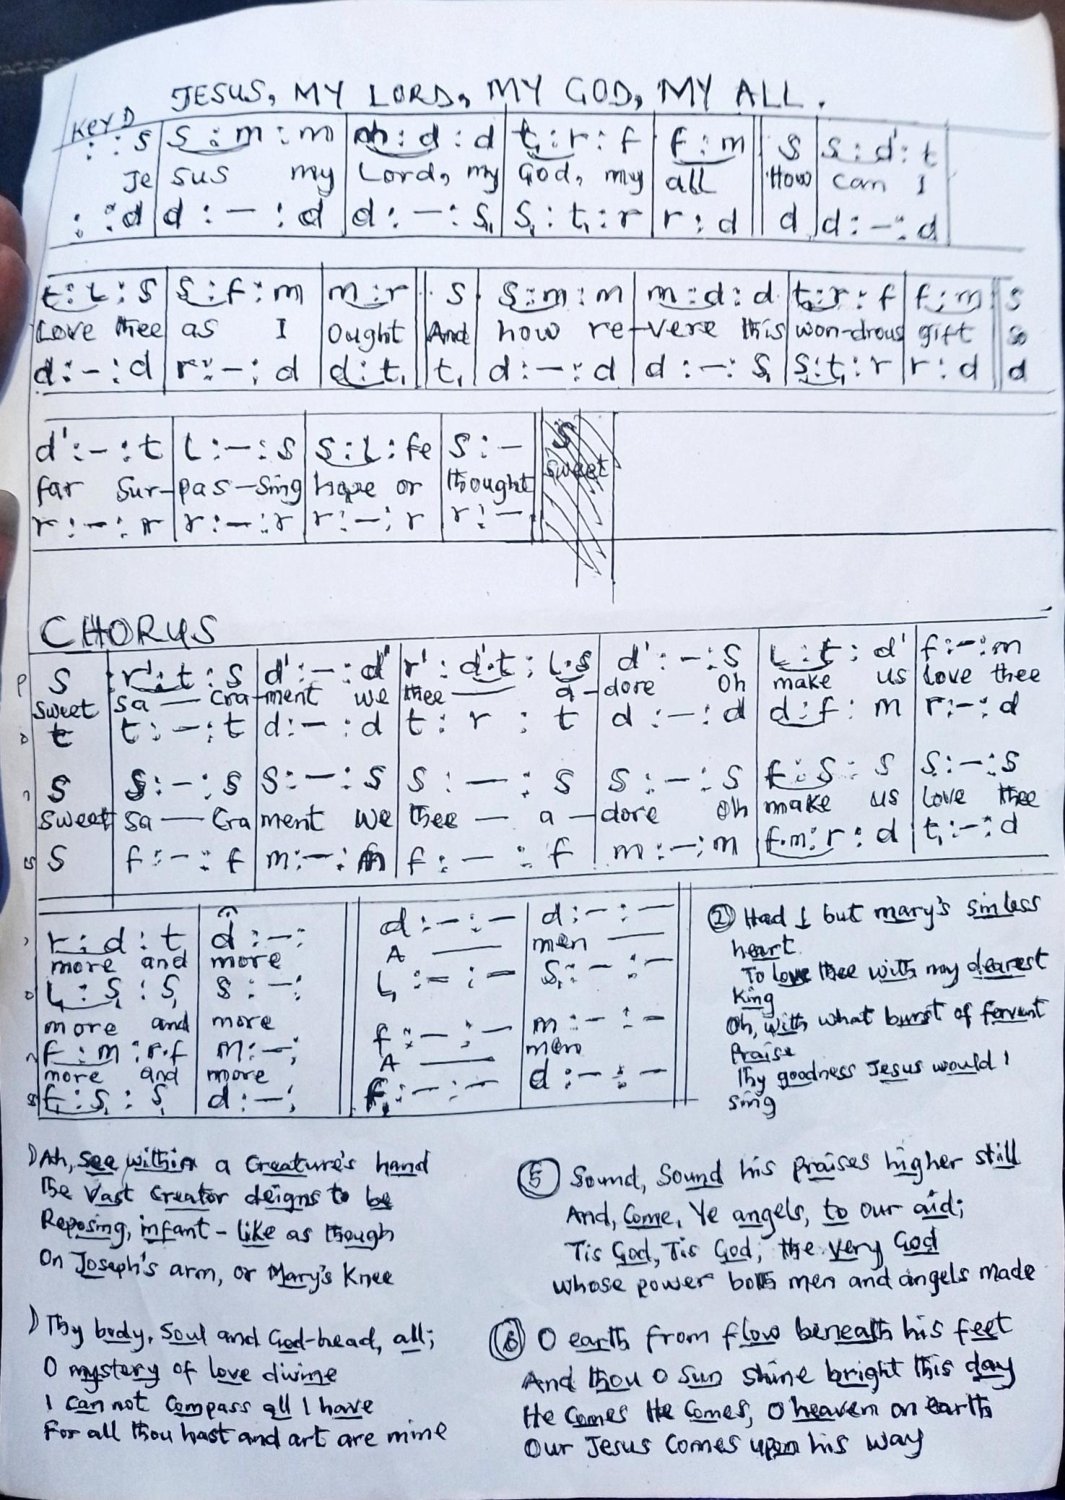 JESUS, MY LORD, MY GOD, MY ALL.
Key D
: : s | s : m : m | m : d : d | t, : r : f | f : m || s | s : d' : t
Je sus my Lord, my God, my all How can I
: : d | d : – : d | d : – : s, | s, : t, : r | r : d || d | d : – : d
t : l : s | s : f : m | m : r || s | s : m : m | m : d : d | t, : r : f | f : m || s
Love thee as I ought And how re-vere this won-drous gift so
d : – : d | r : – : d | d : t, || t, | d : – : d | d : – : s, | s, : t, : r | r : d || d
d' : – : t | l : – : s | s : l : fe | s : –
far Sur-pas-sing hope or thought sweet
r : – : r | r : – : r | r : – : r | r : –
CHORUS
s | r' : t : s | d' : – : d' | r' : d'.t : l.s | d' : – : s | l : t : d' | f : – : m
Sweet Sa — cra-ment we thee — a-dore Oh make us love thee
t | t : – : t | d : – : d | t : r : t | d : – : d | d : f : m | r : – : d
s | s : – : s | s : – : s | s : – : s | s : – : s | f : s : s | s : – : s
Sweet Sa — Cra ment we thee — a — dore Oh make us love thee
s | f : – : f | m : – : m | f : – : f | m : – : m | f.m : r : d | t, : – : d
r : d : t, | d : – : || d : – : – | d : – : –
more and more A — men —
l, : s, : s, | s : – : || l, : – : – | s, : – : –
more and more
f : m : r.f | m : – : || f : – : – | m : – : –
more and more A — men
f, : s, : s, | d : – : || f, : – : – | d : – : –
② Had I but mary's sinless
heart
To love thee with my dearest
King
Oh, with what burst of fervent
Praise
Thy goodness Jesus would I
Sing
) Ah, see within a Creature's hand
The Vast Creator deigns to be
Reposing, infant - like as though
On Joseph's arm, or Mary's Knee
) Thy body, Soul and God-head, all;
O mystery of love divine
I can not compass all I have
For all thou hast and art are mine
⑤ Sound, Sound his praises higher still
And, Come, Ye angels, to our aid;
Tis God, Tis God, the very God
whose power both men and angels made
⑥ O earth from flow beneath his feet
And thou O Sun shine bright this day
He Comes He Comes, O heaven on earth
Our Jesus Comes upon his way